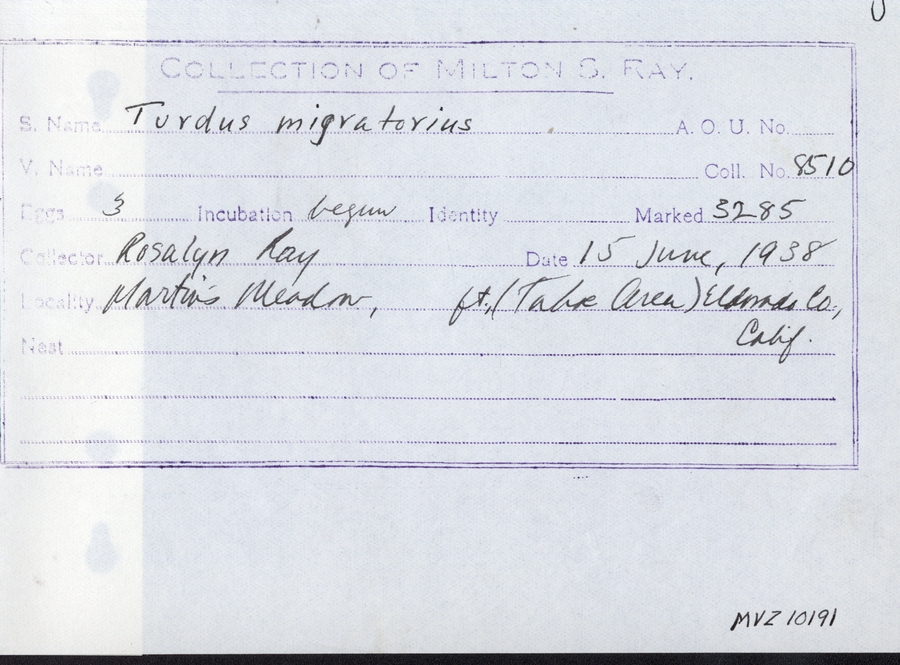 COLLECTION OF MILTON S. RAY.
S. Name Turdus migratorius A. O. U. No.
V. Name Coll. No. 8510
Eggs 3 Incubation begun Identity Marked 3285
Collector Rosalyn Ray Date 15 June, 1938
Locality Martin's Meadow, ft, (Tahoe Area) Eldorado Co.,
Calif.
Nest
MVZ 10191